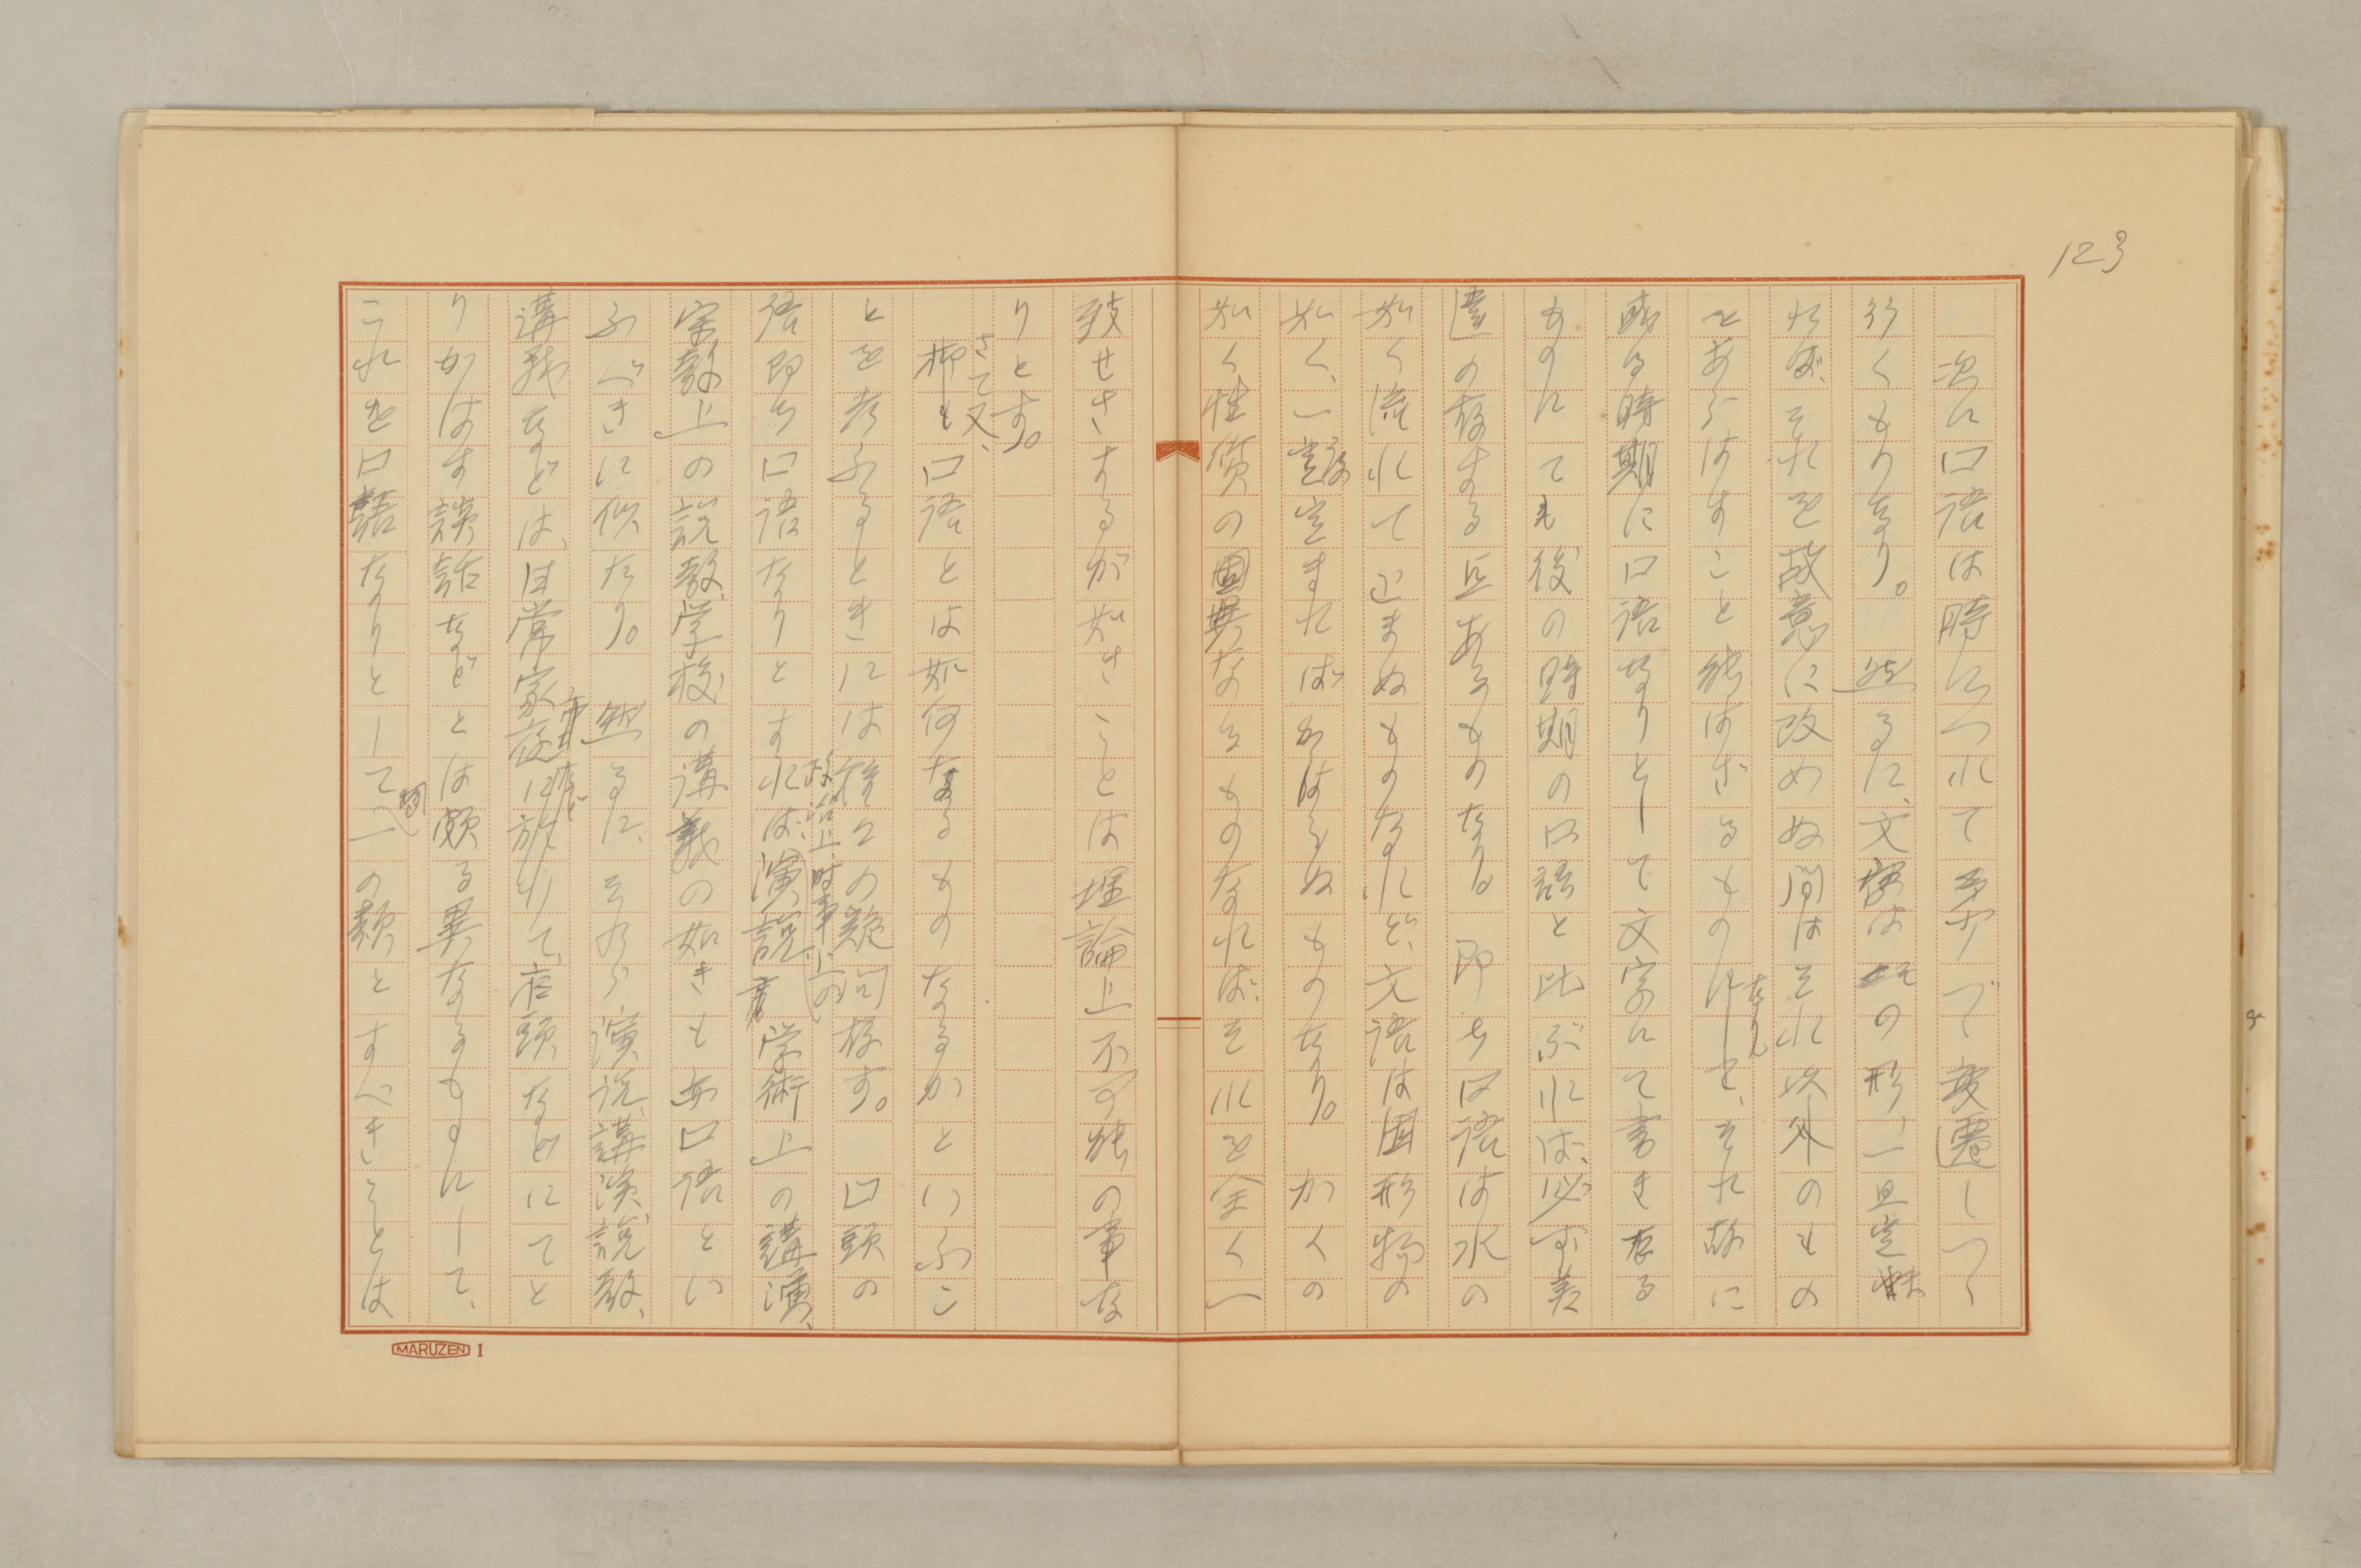 123
次に口語は時につれて変遷しつゝ
行くものなり。然るに、文字は其の形、一旦定
れば、それを故意に改めぬ間はそれ以外のもの
をあらはすこと能はざるものなり。それ故に
或る時期に口語なりとして文字にて書き在る
ものにても後の時期の口語と比ぶれば、必ず差
違の存する点あるものなり。即ち口語は水の
如く流れて止まぬものなれど、文語は固形物の
如く、一度定まればかはらぬものなり。かくの
如く性質の異なるものなればそれを全く一
致せさするが如きことは理論上不可能の事な
りとす。
さて又、
抑も口語とは如何なるものなるかといふこ
とを考ふるときには種々の疑問存す。口頭の
語即ち口語なりとすれば、演説、学術上の講演、
政治上、時事上の
宗教上の説教、学校の講義の如きも亦口語とい
ふべきに似たり。然るに、それら演説、講演、説教、
講義などは、日常家庭に於て、店頭などにてと
りかはす談話などとは頗る異なるものにして、
これを口語なりとして一の類とすべきことは
同
MARUZEN I